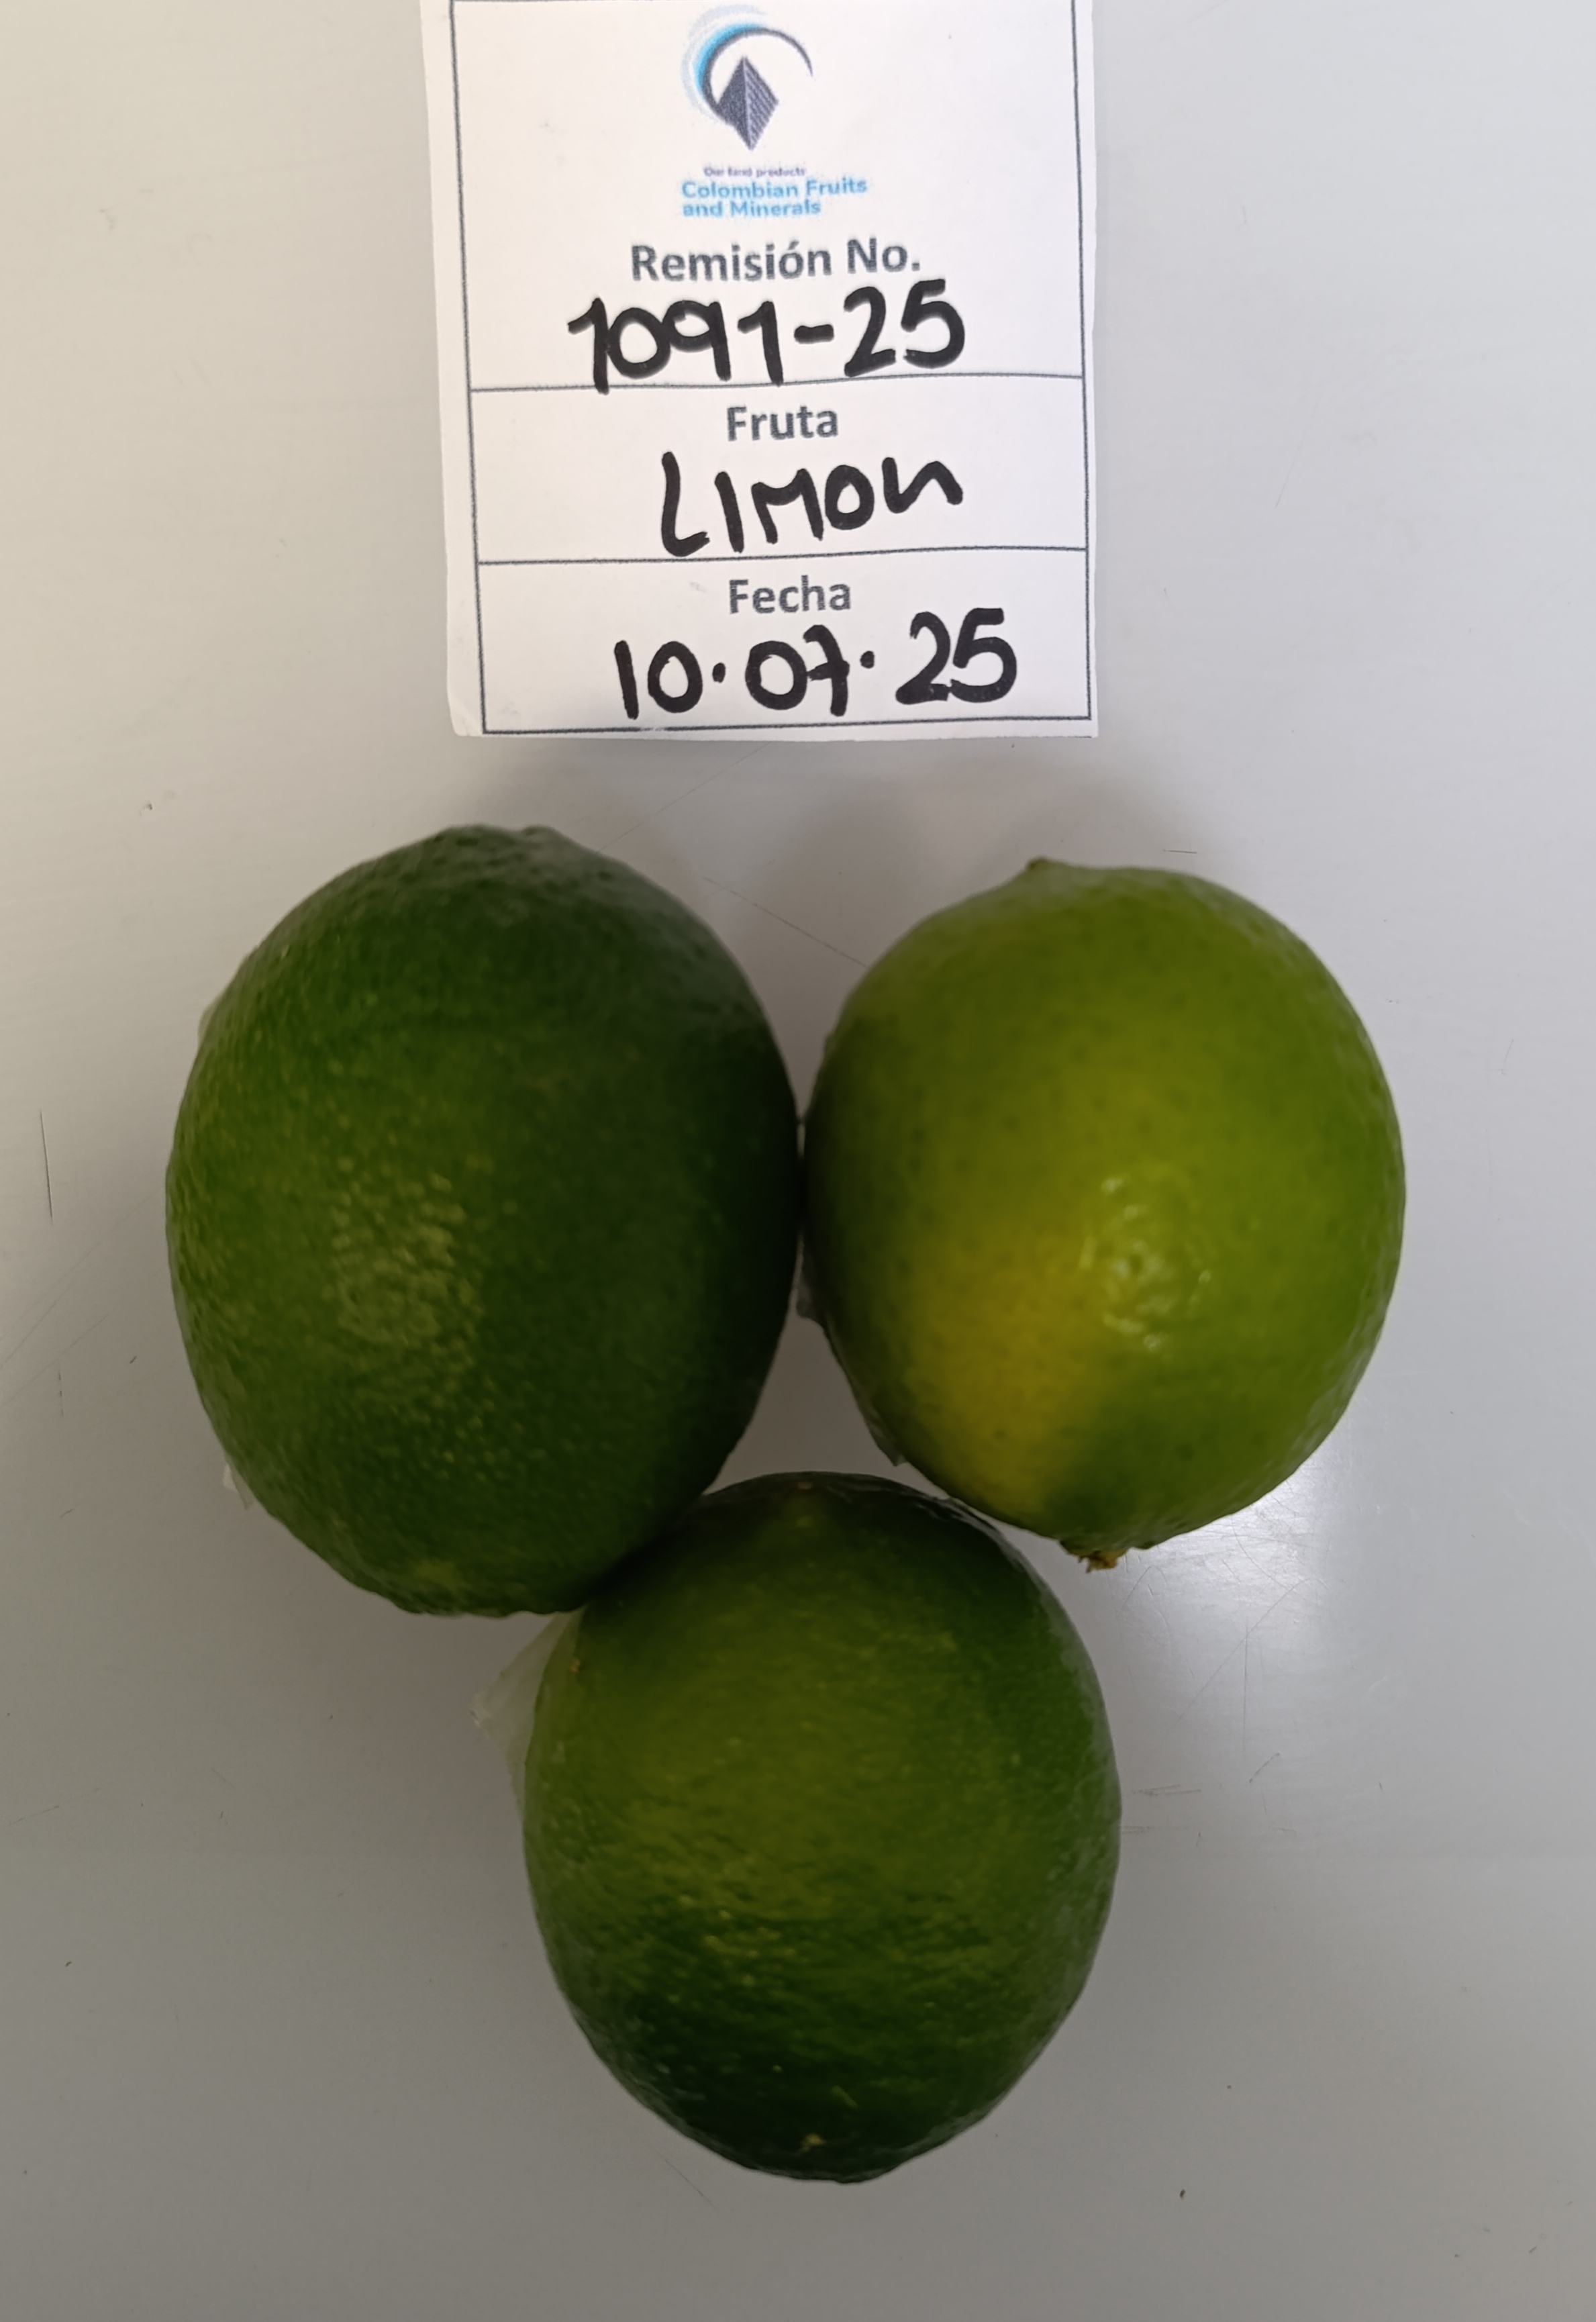 Our land products
Colombian Fruits
and Minerals
Remisión No.
1091-25
Fruta
LIMON
Fecha
10.07.25